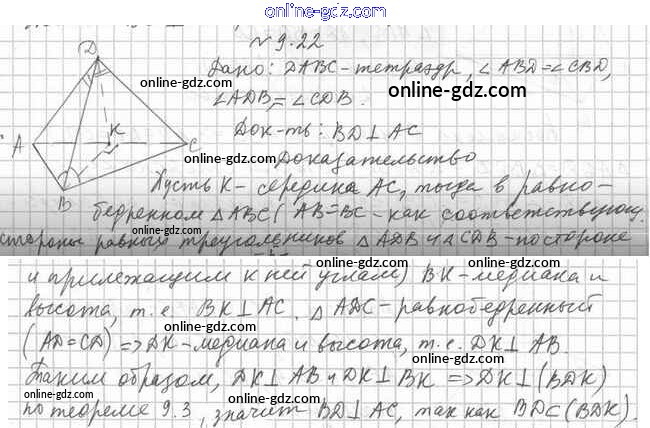 online-gdz.com
N 9.22
Дано: DABC – тетраэдр, ∠ABD = ∠CBD,
online-gdz.com
∠ADB = ∠CDB.
online-gdz.com
Док-ть: BD ⊥ AC
online-gdz.com
Доказательство
D
A
K
C
B
Пусть K – середина AC, тогда в равно-
online-gdz.com
бедренном △ABC (AB=BC – как соответствующ.
стороны равных треугольников △ADB и △CDB – по стороне
и прилежащим к ней углам) BK – медиана и
online-gdz.com
высота, т.е. BK ⊥ AC. △ADC – равнобедренный
online-gdz.com
(AD=CD) => DK – медиана и высота, т.е. DK ⊥ AB.
online-gdz.com
Таким образом, DK ⊥ AB и DK ⊥ BK => DK ⊥ (BDK)
online-gdz.com
по теореме 9.3, значит BD ⊥ AC, так как BD ⊂ (BDK).
online-gdz.com